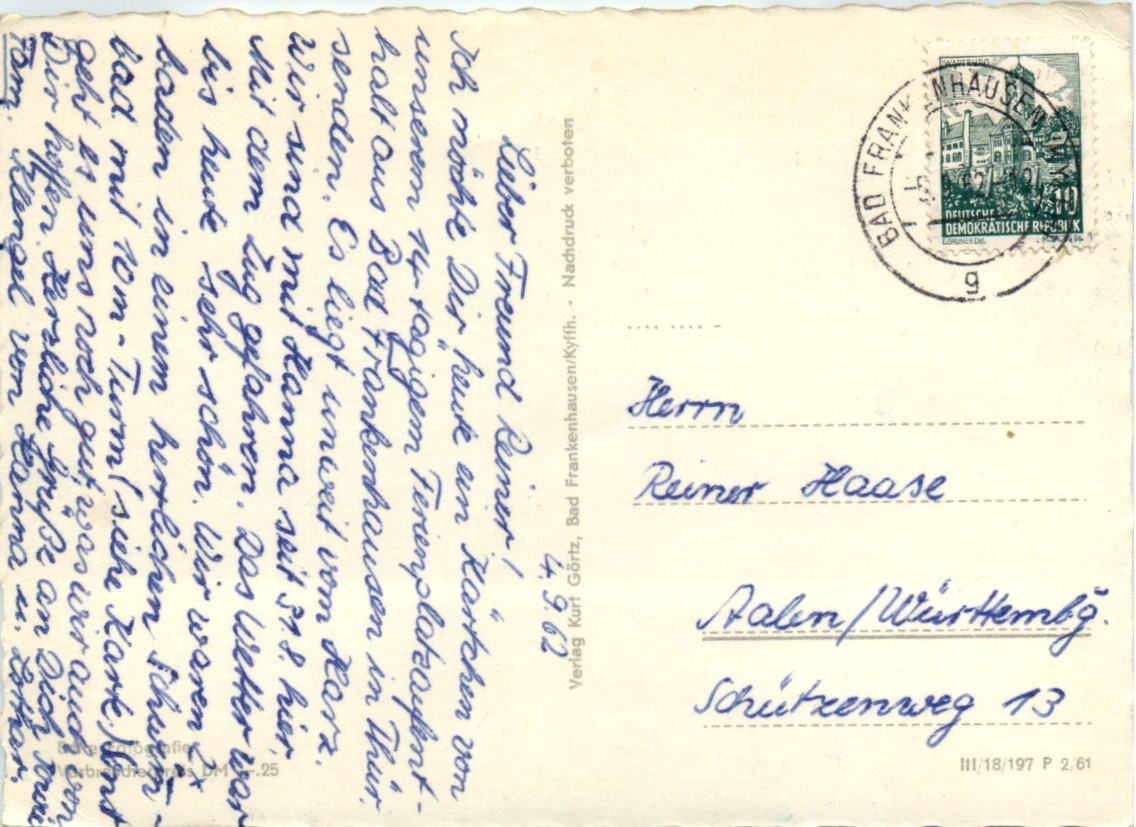 4.9.62
Lieber Freund Reiner!
Ich möchte Dir heute ein Kärtchen von
unserem 14-tägigem Ferienplatzaufent-
halt aus Bad Frankenhausen in Thür.
senden. Es liegt unweit vom Harz.
Wir sind mit Hanna seit 31.8. hier
Mit dem Zug gefahren. Das Wetter war
bis heute sehr schön. Wir waren
baden in einem herrlichen Schwimm-
bad mit 10m-Turm (siehe Karte). Sonst
geht es uns noch gut, was wir auch von
Dir hoffen. Herzliche Grüße an Dich
Fam. Klengel von Hanna u. Lothar.
Verlag Kurt Görtz, Bad Frankenhausen/Kyffh. - Nachdruck verboten
WARTBURG
10
DEUTSCHE
DEMOKRATISCHE REPUBLIK
BAD FRANKENHAUSEN
g
Herrn
Reiner Haase
Aalen/Württembg.
Schützenweg 13
Echte Fotografie
Verbraucherpreis DM -.25
III/18/197 P 2/61